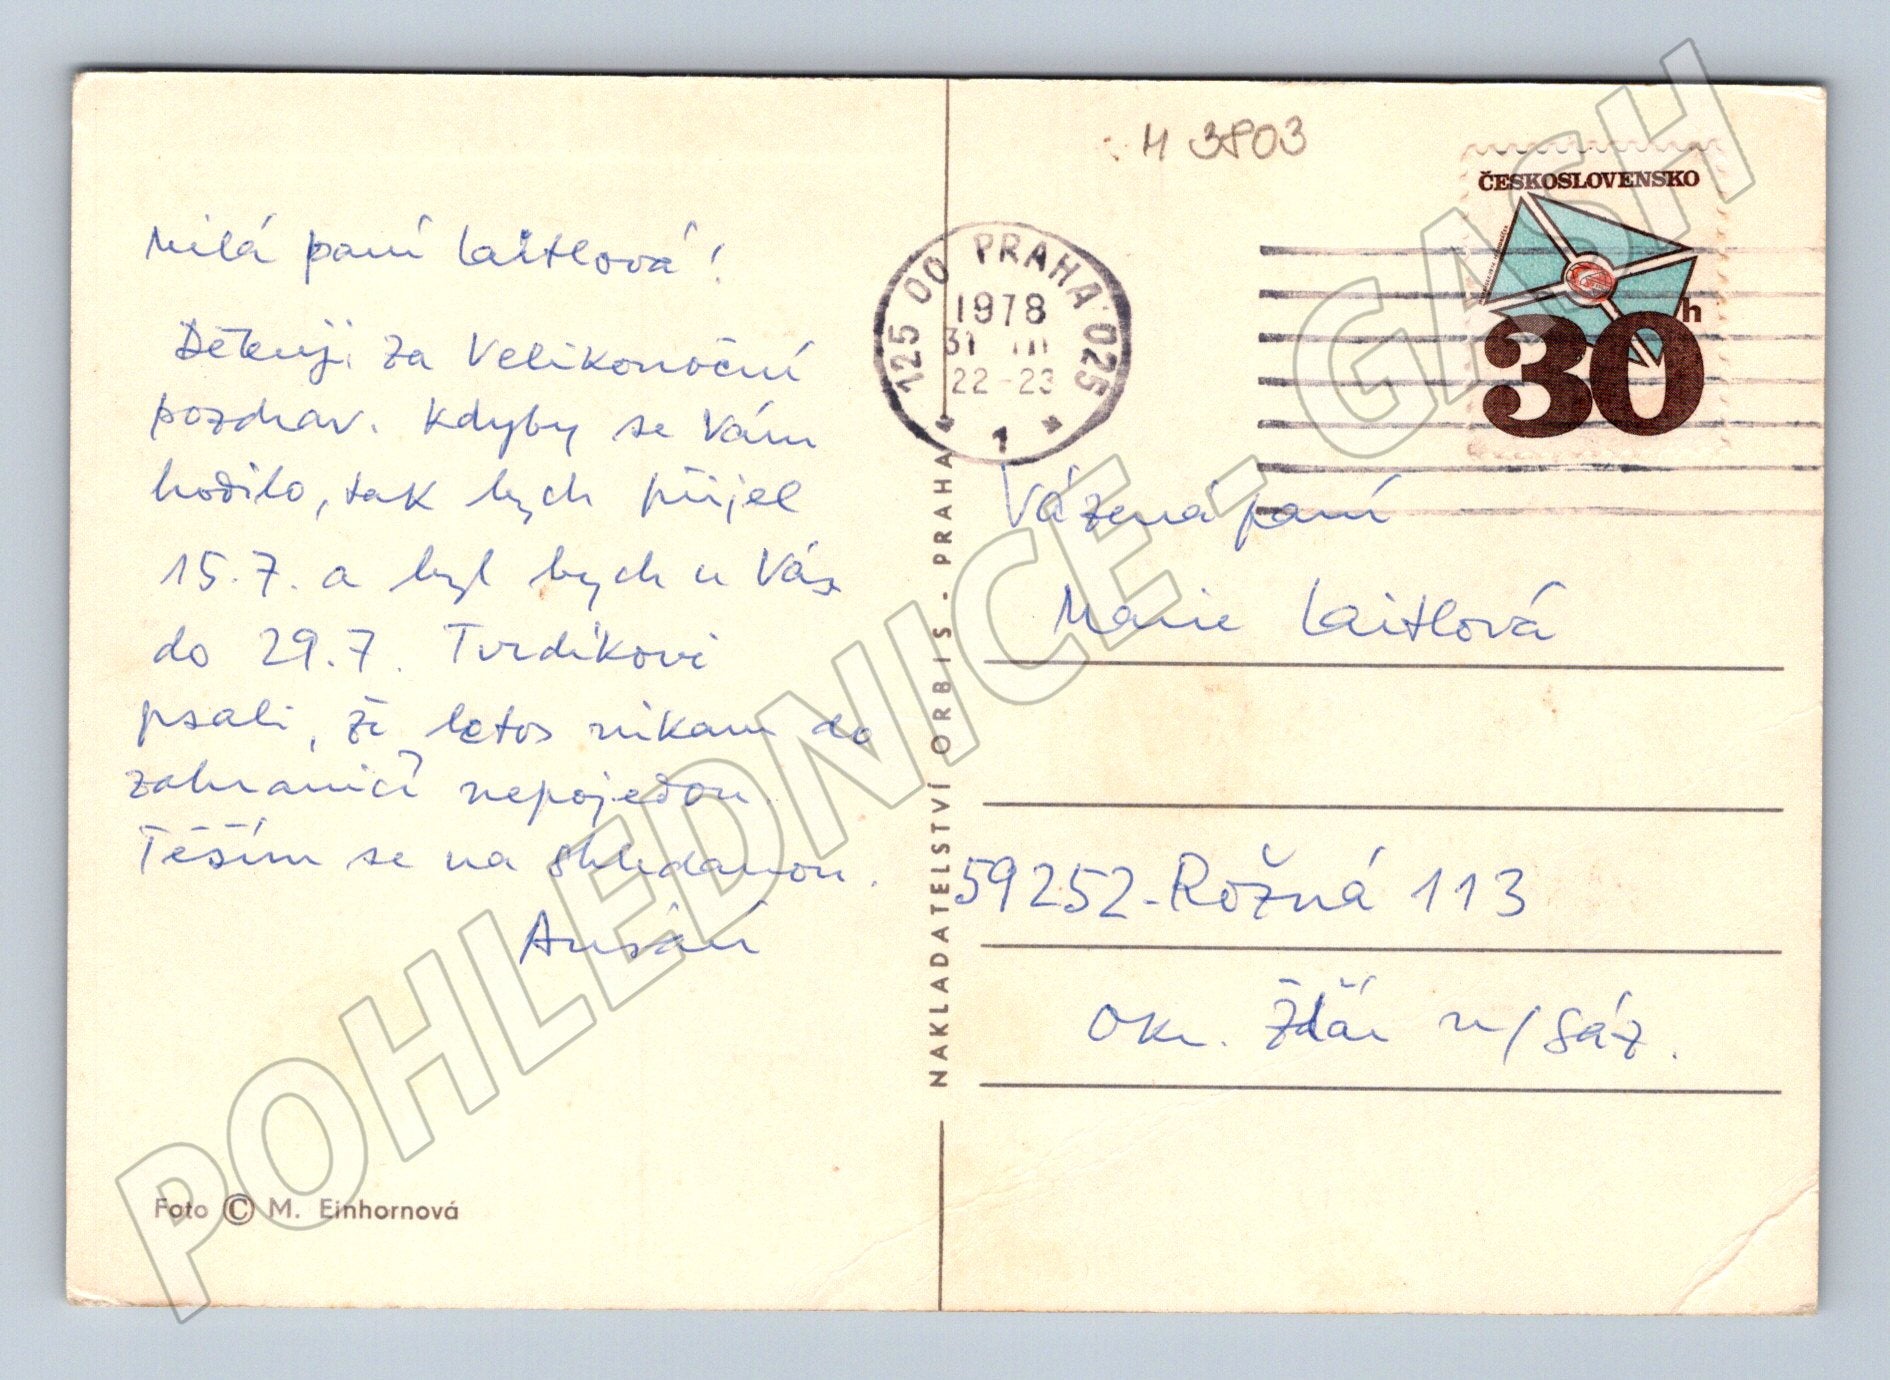 M 3803
ČESKOSLOVENSKO
30
h
125 00 PRAHA 025
1978
31 III
22-23
1
Milá paní Laitlová!
Děkuji za Velikonoční
pozdrav. Kdyby se Vám
hodilo, tak bych přijel
15.7. a byl bych u Vás
do 29.7. Tvrdíkovi
psali, že letos nikam do
zahraničí nepojedou.
Těším se na shledanou.
Foto © M. Einhornová
NAKLADATELSTVÍ ORBIS - PRAHA
Vážená paní
Marie Laitlová
59252-Rožná 113
Okr. Žďár n/Sáz.
POHLEDNICE - GASH